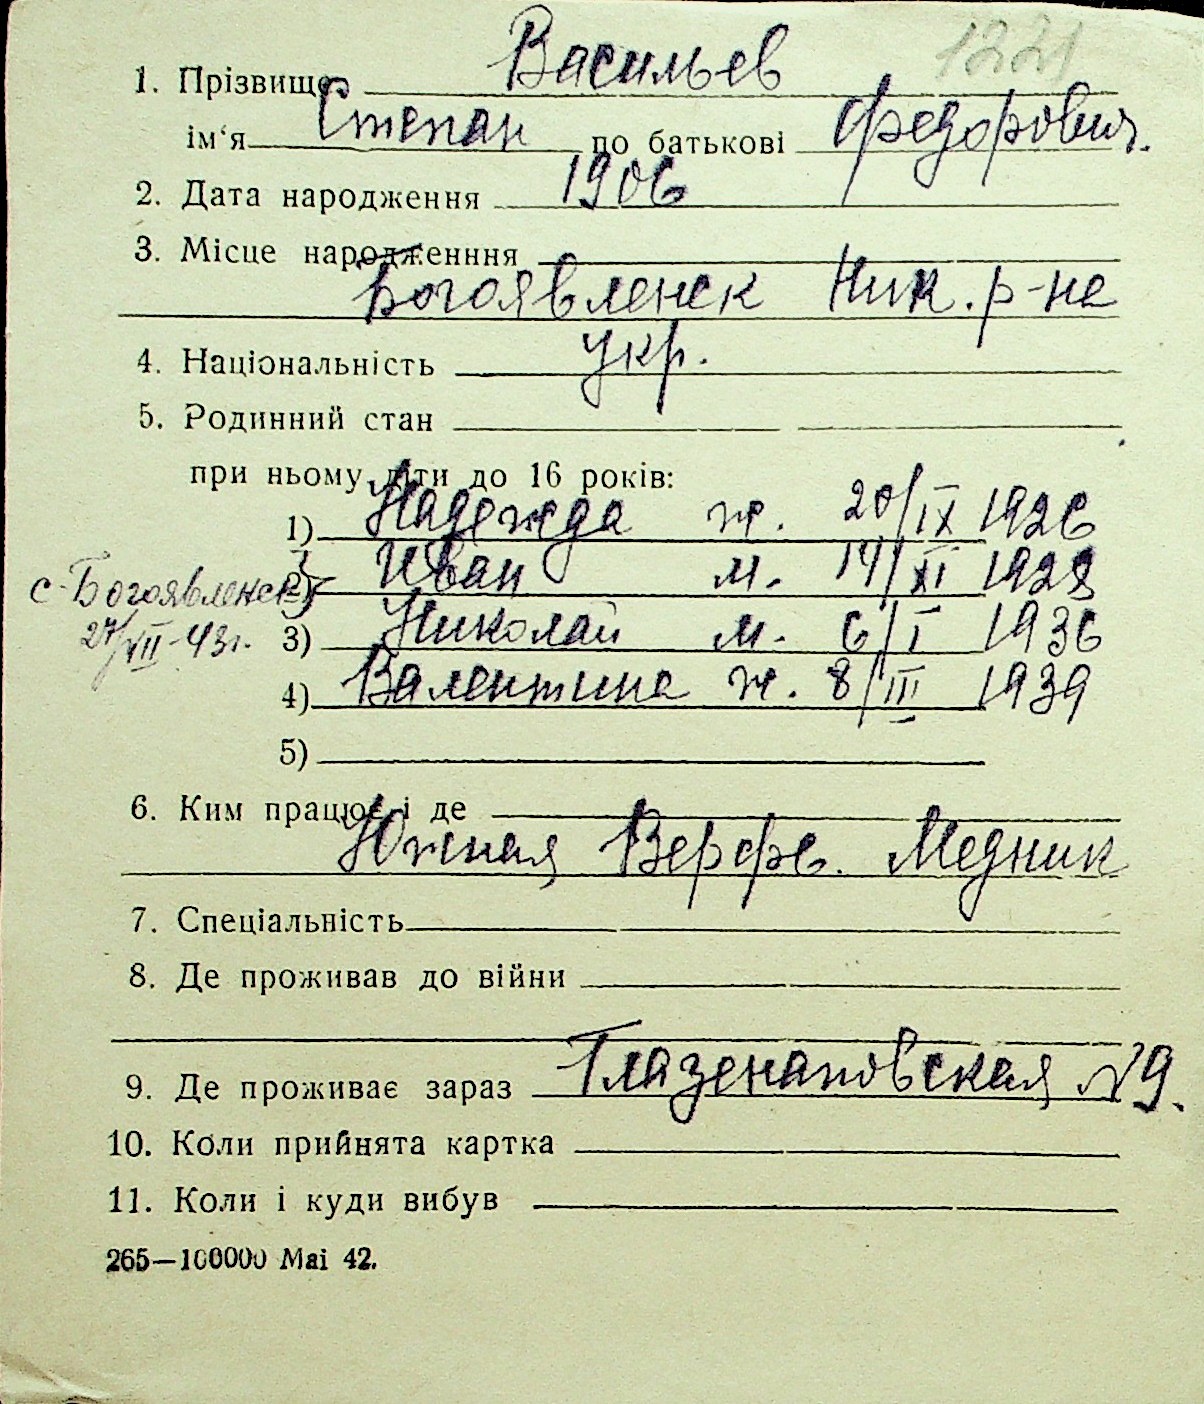 1221
1. Прізвище Васильев
ім‘я Степан по батькові Федорович.
2. Дата народження 1906
3. Місце народженння
Богоявленск Ник. р-на
4. Національність укр.
5. Родинний стан
при ньому діти до 16 років:
1) Надежда ж. 20/IX 1926
2) Иван м. 14/XI 1928
с. Богоявленск
3) Николай м. 6/I 1936
27/VII-43г.
4) Валентина ж. 8/III 1939
5)
6. Ким працює і де
Южная Верфь. Медник
7. Спеціальність
8. Де проживав до війни
9. Де проживає зараз Глазенаповская N9.
10. Коли прийнята картка
11. Коли і куди вибув
265—100000 Mai 42.